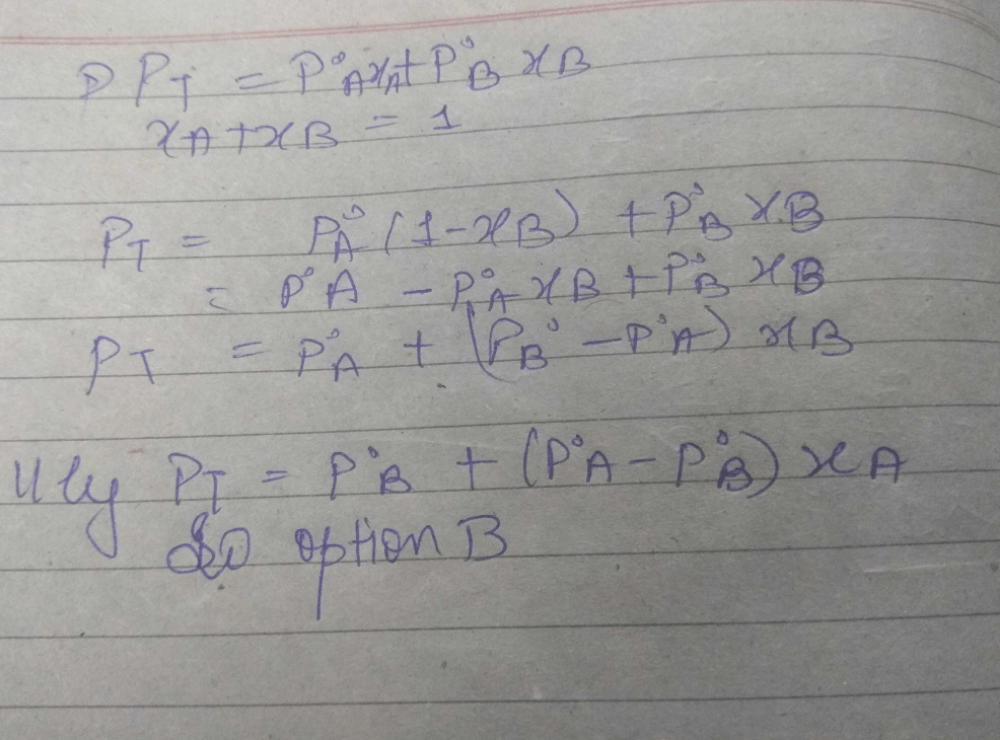 P_T = P°_A x_A + P°_B x_B
x_A + x_B = 1
P_T = P°_A (1 - x_B) + P°_B x_B
= P°_A - P°_A x_B + P°_B x_B
P_T = P°_A + (P_B° - P°_A) x_B
lly P_T = P°_B + (P°_A - P°_B) x_A
So option B